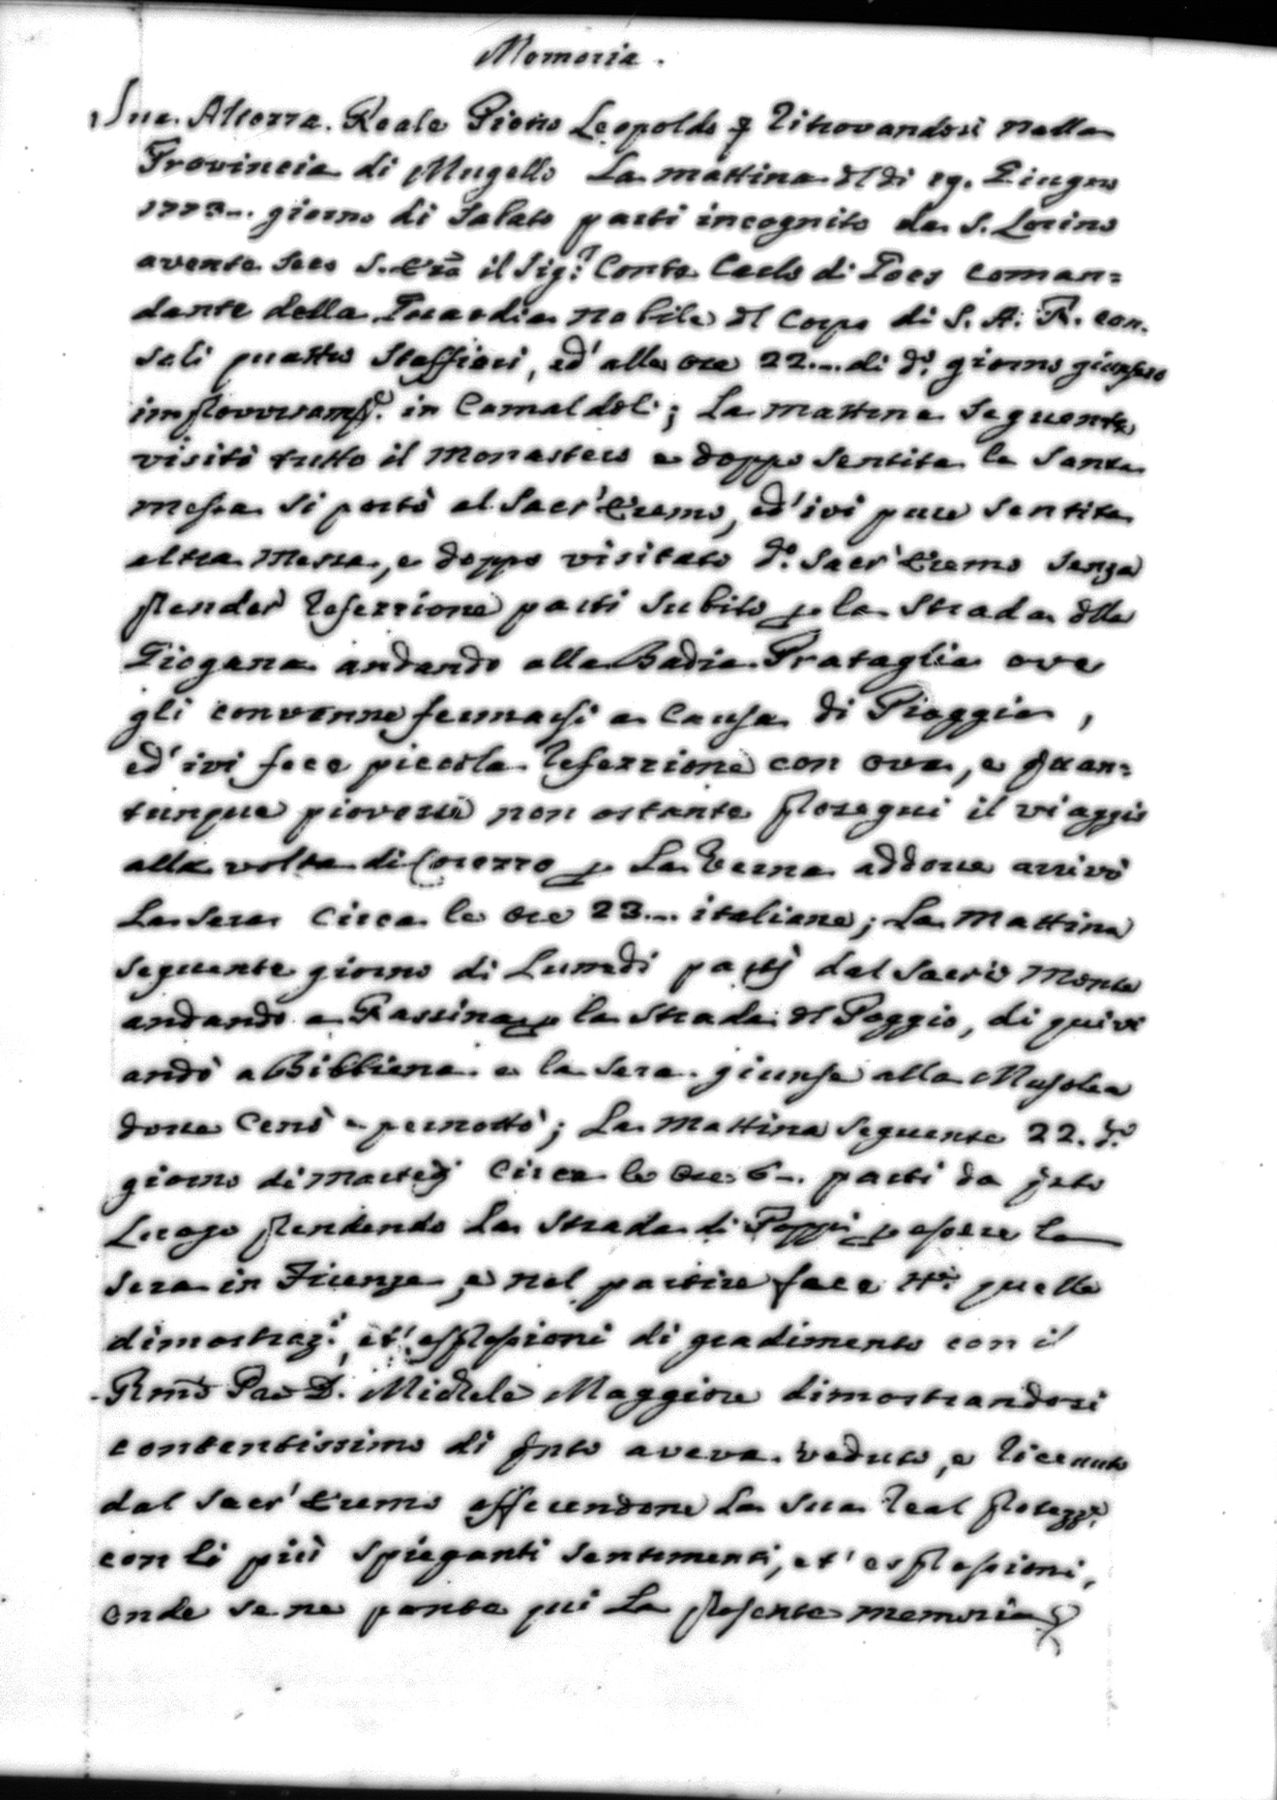 Memoria.
Sua Altezza Reale Pietro Leopoldo ritrovandosi nella
Provincia di Mugello La mattina dl dì 19. Giugno
1773.. giorno di Sabato partì incognito da S. Lorino
avente seco S. il Sig.r Conte Carlo di Goes coman=
dante della Guardia nobile dl Corpo di S. A. R. con
soli quattro Staffieri, ed' alle ore 22... di d.o giorno giunsero
in Camaldoli; La mattina seguente
visitò tutto il Monastero e doppo sentita la Santa
messa si portò al Sacr' Eremo, ed' ivi pure sentita
altra Messa, e doppo visitato d.o Sacr' Eremo senza
prender refezzione partì subito p la Strada dlla
Giogana andando alla Badia Prataglia ove
gli convenne fermarsi a causa di Pioggia,
ed' ivi fece piccola refezzione con ova, e quan=
tunque piovesse non ostante proseguì il viaggio
alla volta di Corezzo p La Verna addove arrivò
La sera circa le ore 23... italiane; La Mattina
seguente giorno di Lunedì partì dal Sacro Monte
andando a Rassina p la Strada dl Poggio, di quivi
andò a Bibbiena e la sera giunse alla Musolea
dove Cenò e pernottò; La Mattina seguente 22. d.o
giorno di Martedì circa le ore 6... partì da qsto
Luogo prendendo La Strada di Poppi p essere la
sera in Firenze, e nel partire fece quelle
dimostraz.i, et' espressioni di gradimento con il
Rmo Pre D. Michele Maggiore dimostrandosi
contentissimo di qnto aveva veduto, e ricevuto
dal Sacr' Eremo offerendone La sua real protezz.e
con li più spieganti sentimenti, et' espressioni,
onde se ne ponte qui La presente memoria